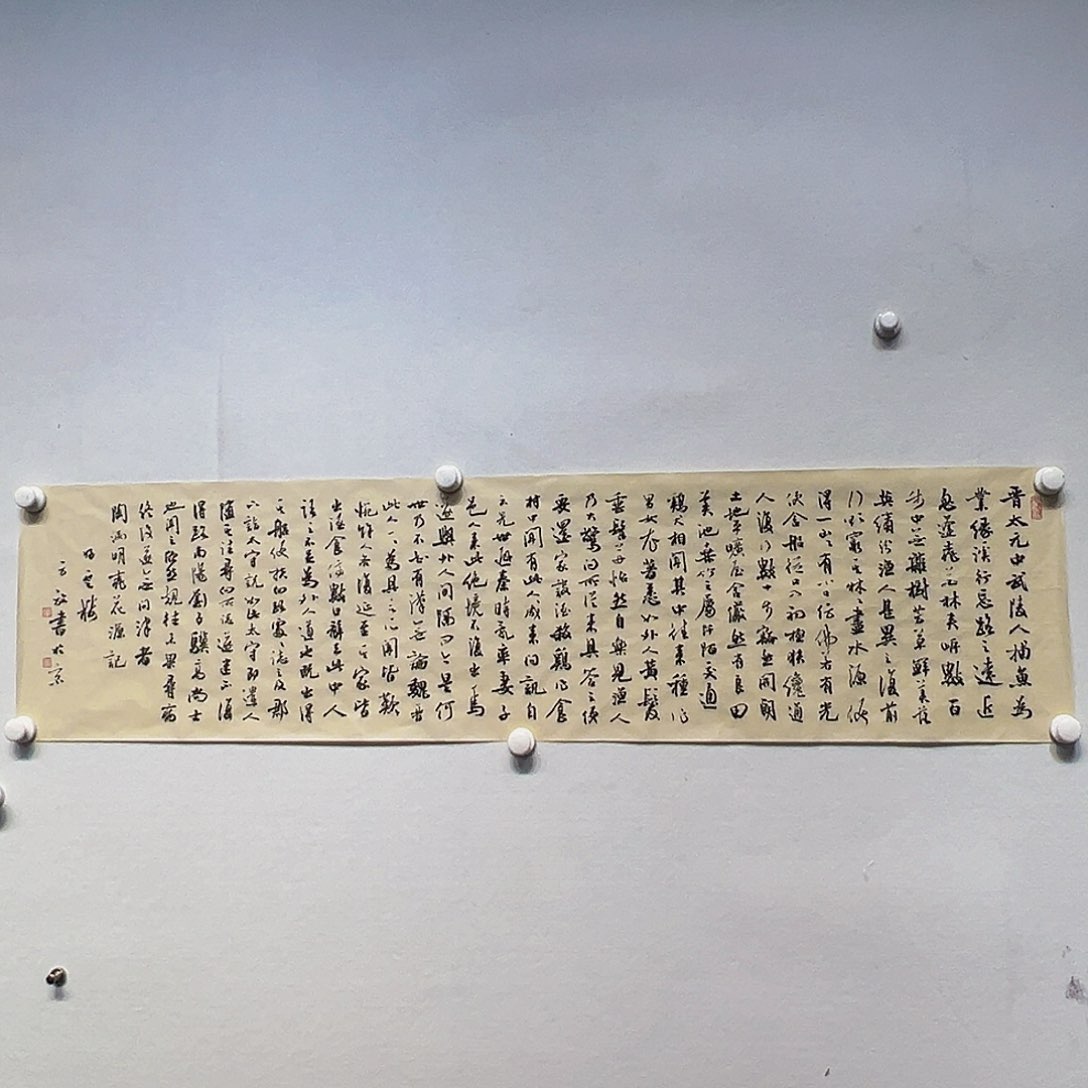 晋太元中武陵人捕魚為
業緣溪行忘路之遠近
忽逢桃花林夹岸數百
步中無雜樹芳草鮮美落
英繽紛漁人甚異之復前
行欲窮其林林盡水源便
得一山山有小口彷佛若有光
便舍船從口入初極狭纔通
人復行數十步豁然開朗
土地平曠屋舍儼然有良田
美池桑竹之屬阡陌交通
鷄犬相聞其中往來種作
男女衣著悉如外人黄髮
垂髫並怡然自樂見漁人
乃大驚问所從来具答之便
要還家設酒殺鷄作食
村中聞有此人咸来问訊自
云先世避秦時亂率妻子
邑人来此絶境不復出焉
遂與外人间隔问今是何
世乃不知有漢無論魏晋
此人一一為具言所聞皆歎
惋餘人各復延至其家皆
出酒食停數日辭去此中人
語云不足為外人道也既出得
其船便扶向路處處誌之及郡
下詣太守説如此太守即遣人
隨其往尋向所誌遂迷不復
得路南陽劉子驥高尚士
也聞之欣然規往未果尋病
終後遂無问津者
陶渊明桃花源記
書於京